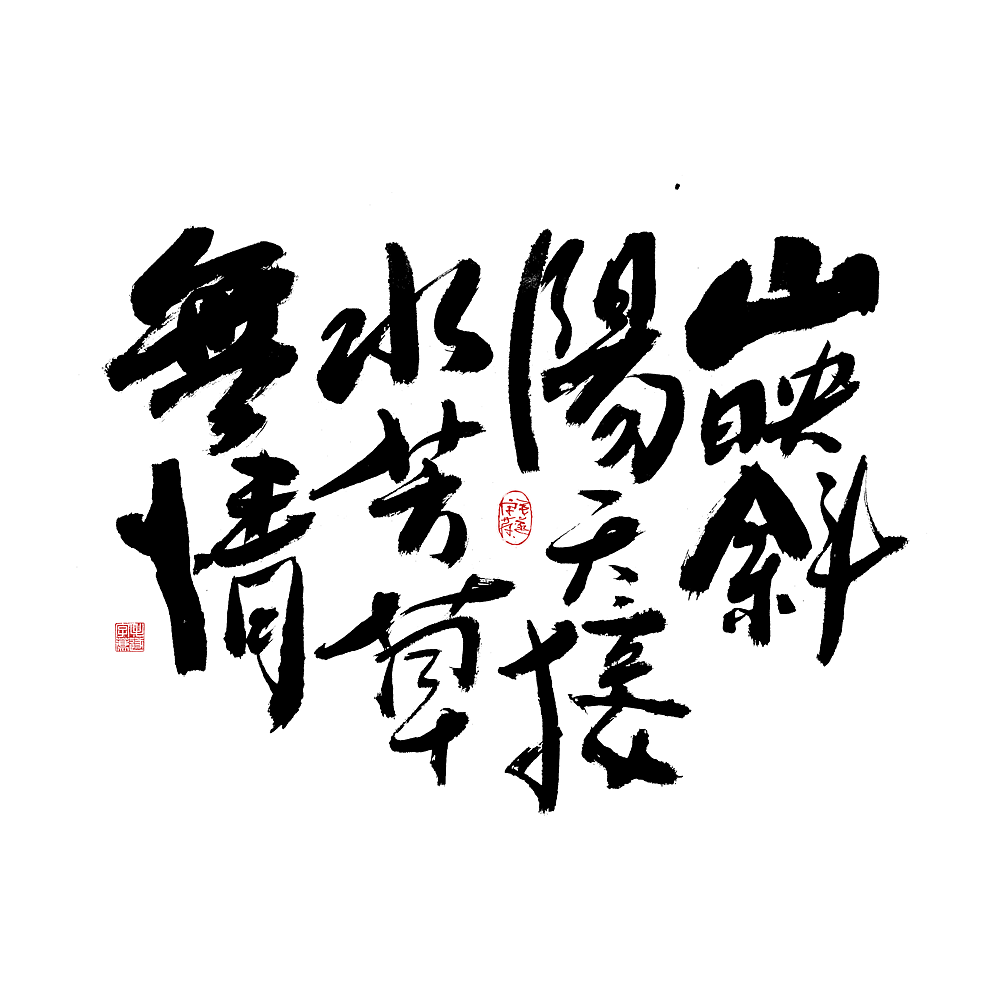 山映斜
陽天接
水芳草
無情